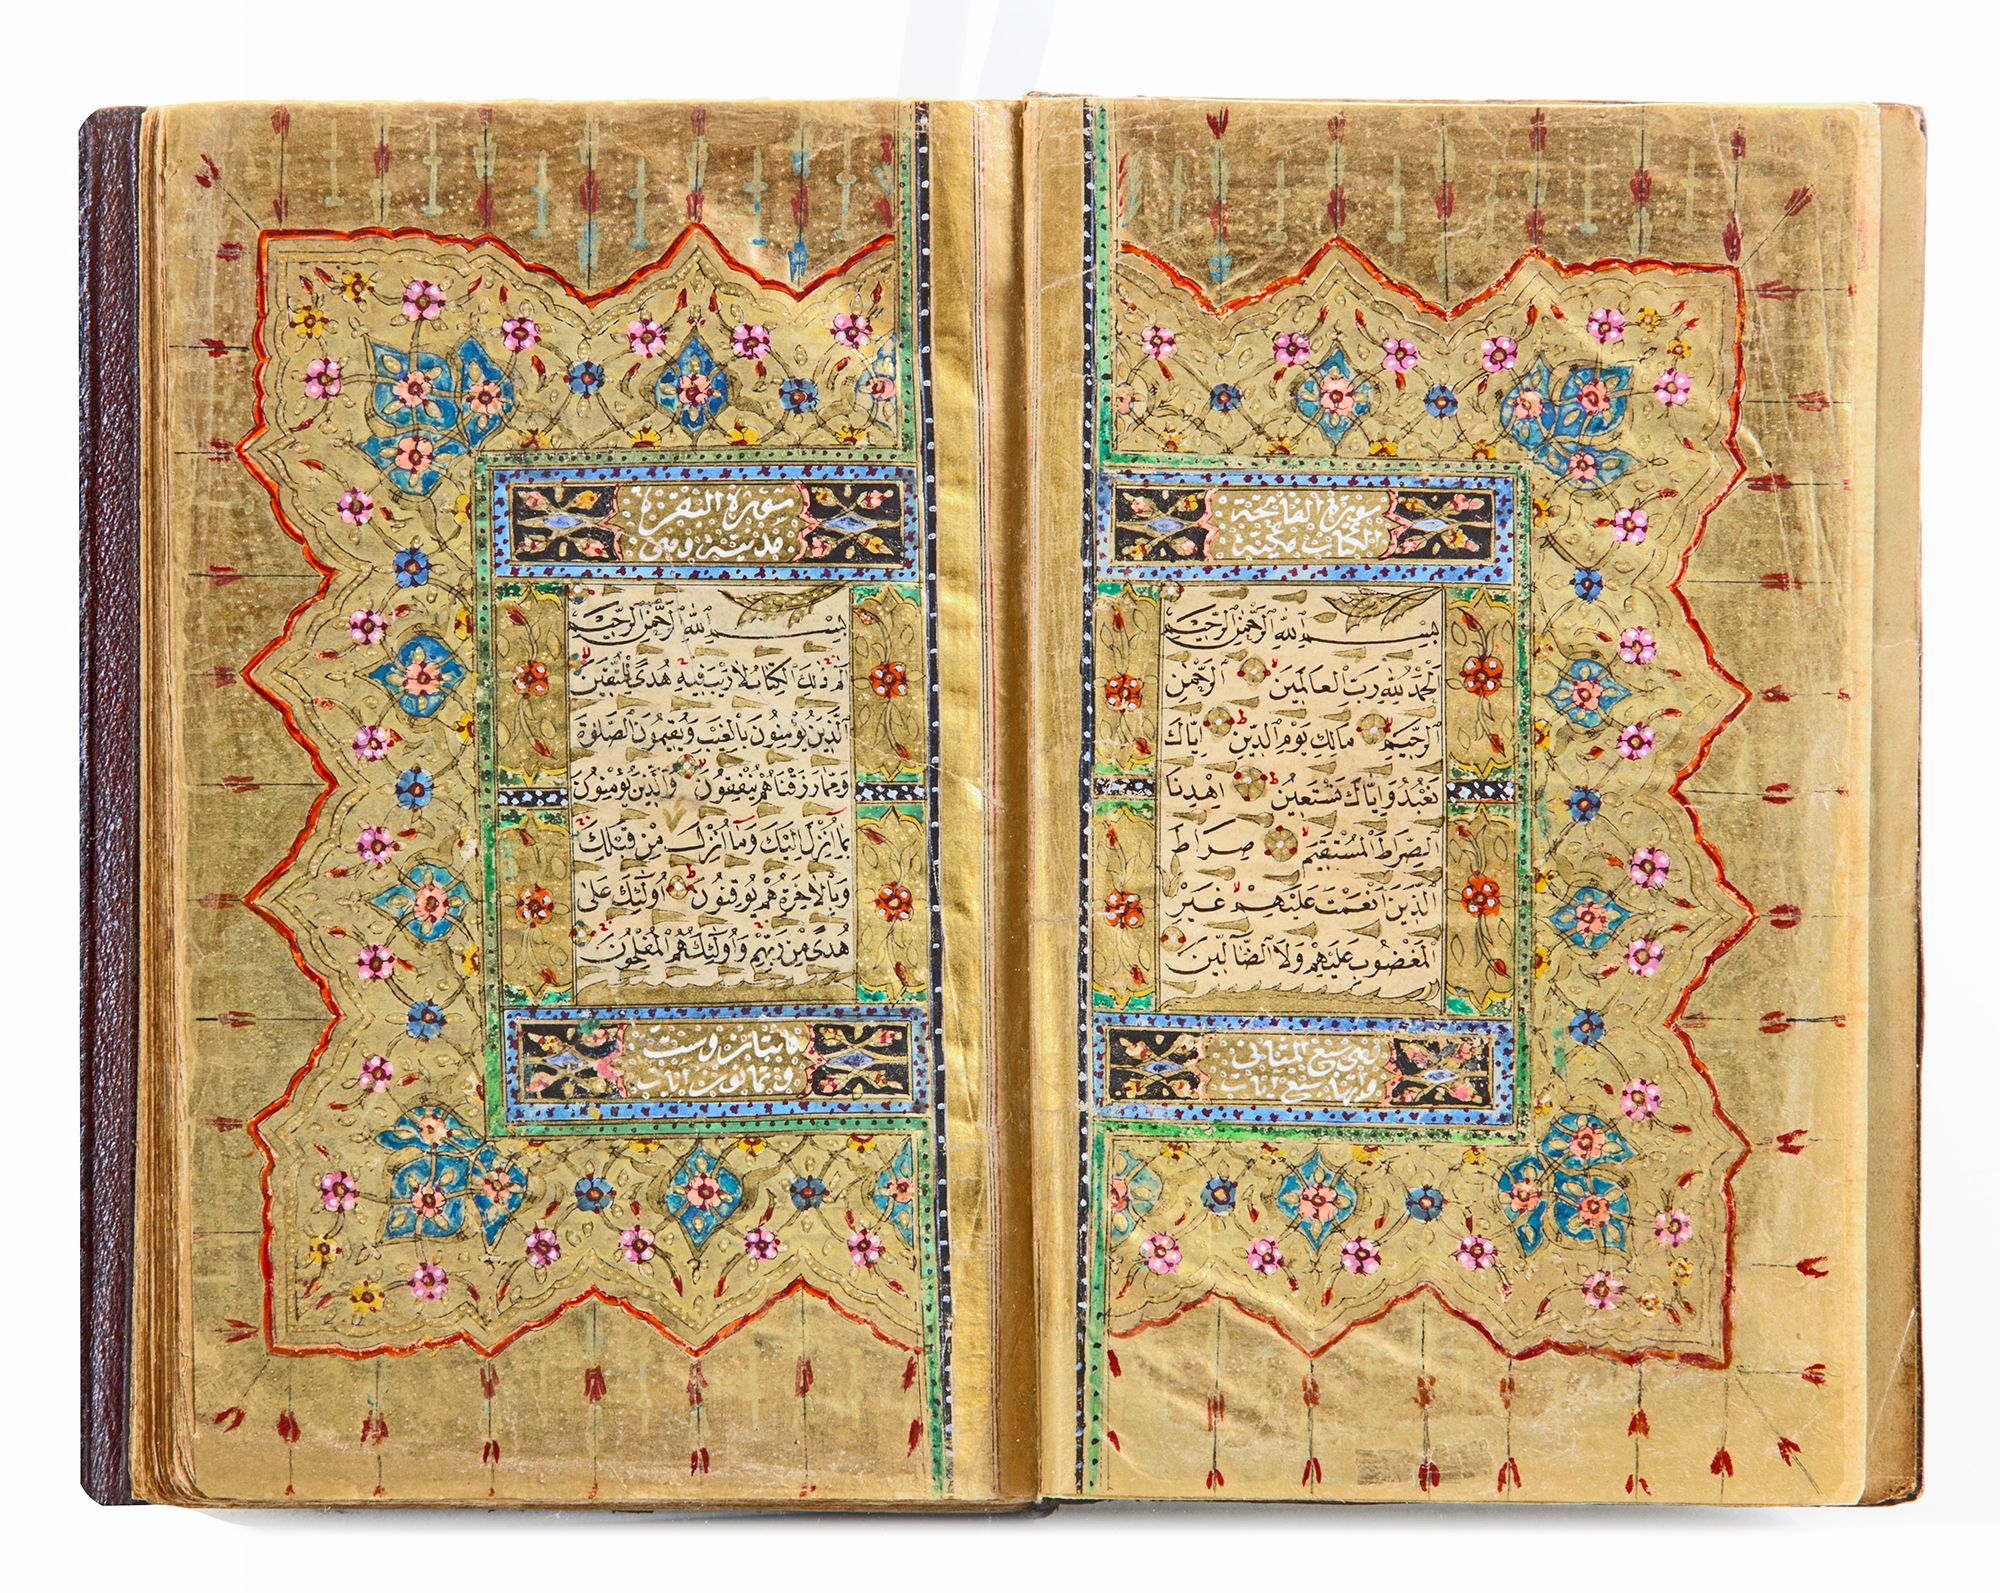 سورة الفاتحة
الكتاب مكية
بسم الله الرحمن الرحيم
الحمد لله رب العالمين الرحمن
الرحيم مالك يوم الدين اياك
نعبد واياك نستعين اهدنا
الصراط المستقيم صراط
الذين انعمت عليهم غير
المغضوب عليهم ولا الضالين
وهي سبع المثاني
وايتها سبع ايات
سورة البقرة
مدنية وهي
بسم الله الرحمن الرحيم
الم ذلك الكتاب لا ريب فيه هدى للمتقين
الذين يؤمنون بالغيب ويقيمون الصلوة
ومما رزقناهم ينفقون والذين يؤمنون
بما انزل اليك وما انزل من قبلك
وبالاخرة هم يوقنون اولئك على
هدى من ربهم واولئك هم المفلحون
مايتان وست
وثمانون ايات